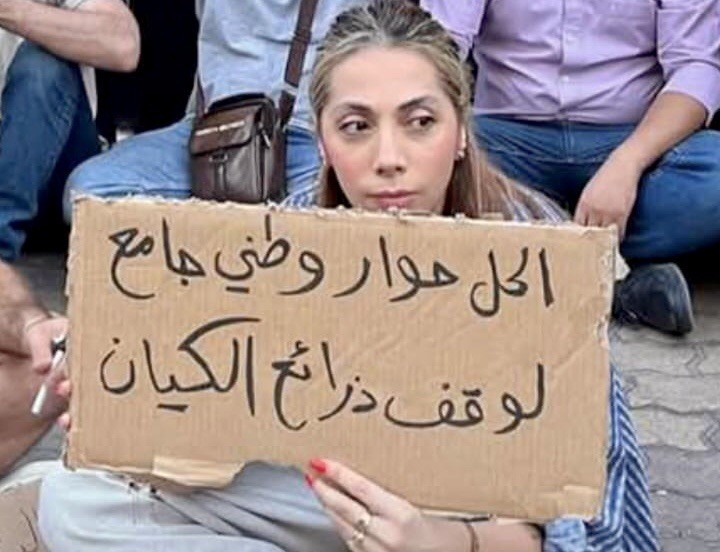 الحل حوار وطني جامع
لوقف ذرائع الكيان